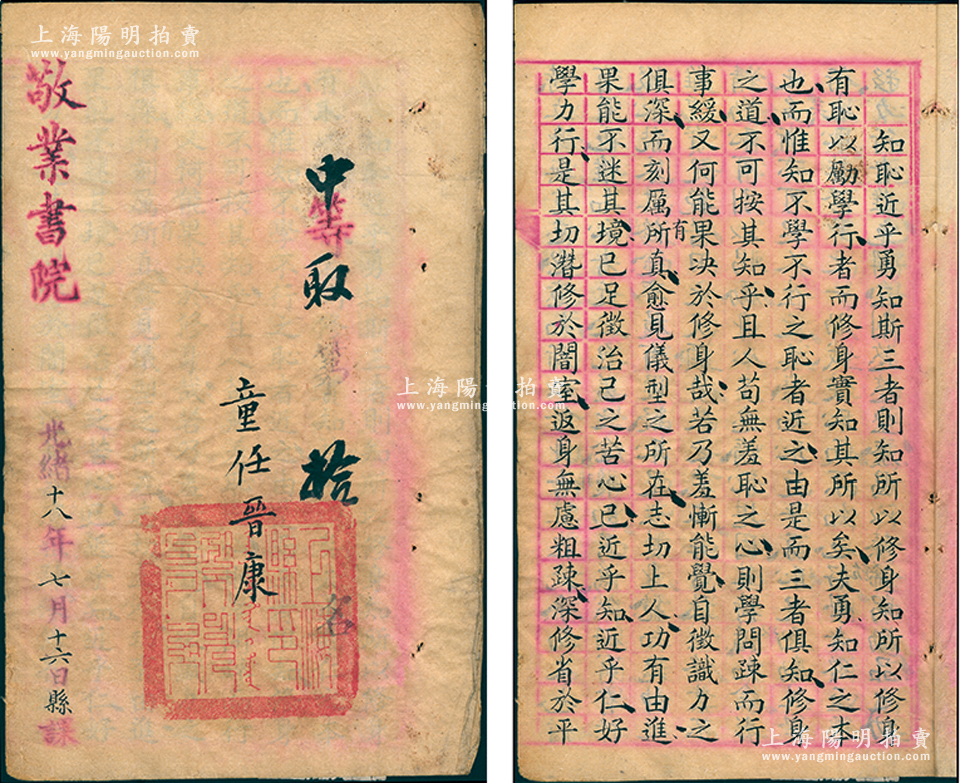 上海陽明拍賣
www.yangmingauction.com
敬業書院
中等取
第
拾
名
童任晉康
光緒十八年七月十六日縣課
上海陽明拍賣
www.yangmingauction.com
上海陽明拍賣
www.yangmingauction.com
知恥近乎勇知斯三者則知所以修身知所以修身
有恥以勵學行者而修身實知其所以矣夫勇知仁之本
也而惟知不學不行之恥者近之由是而三者俱知修身
之道不可按其知乎且人苟無羞恥之心則學問疎而行
事緩又何能果決於修身哉若乃羞慚能覺自徵識力之
俱深而刻厲所有真愈見儀型之所在志切上人功有由進
果能不迷其境已足徵治己之苦心已近乎知近乎仁好
學力行是其切潛修於闇室返身無慮粗疎深修省於平
上海陽明拍賣
www.yangmingauction.com